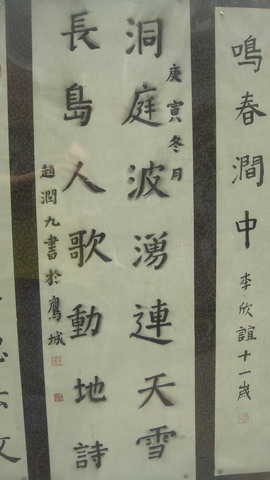 鳴春澗中
李欣誼十一歲
洞庭波湧連天雪
長島人歌動地詩
庚寅冬月
趙潤九書於鷹城